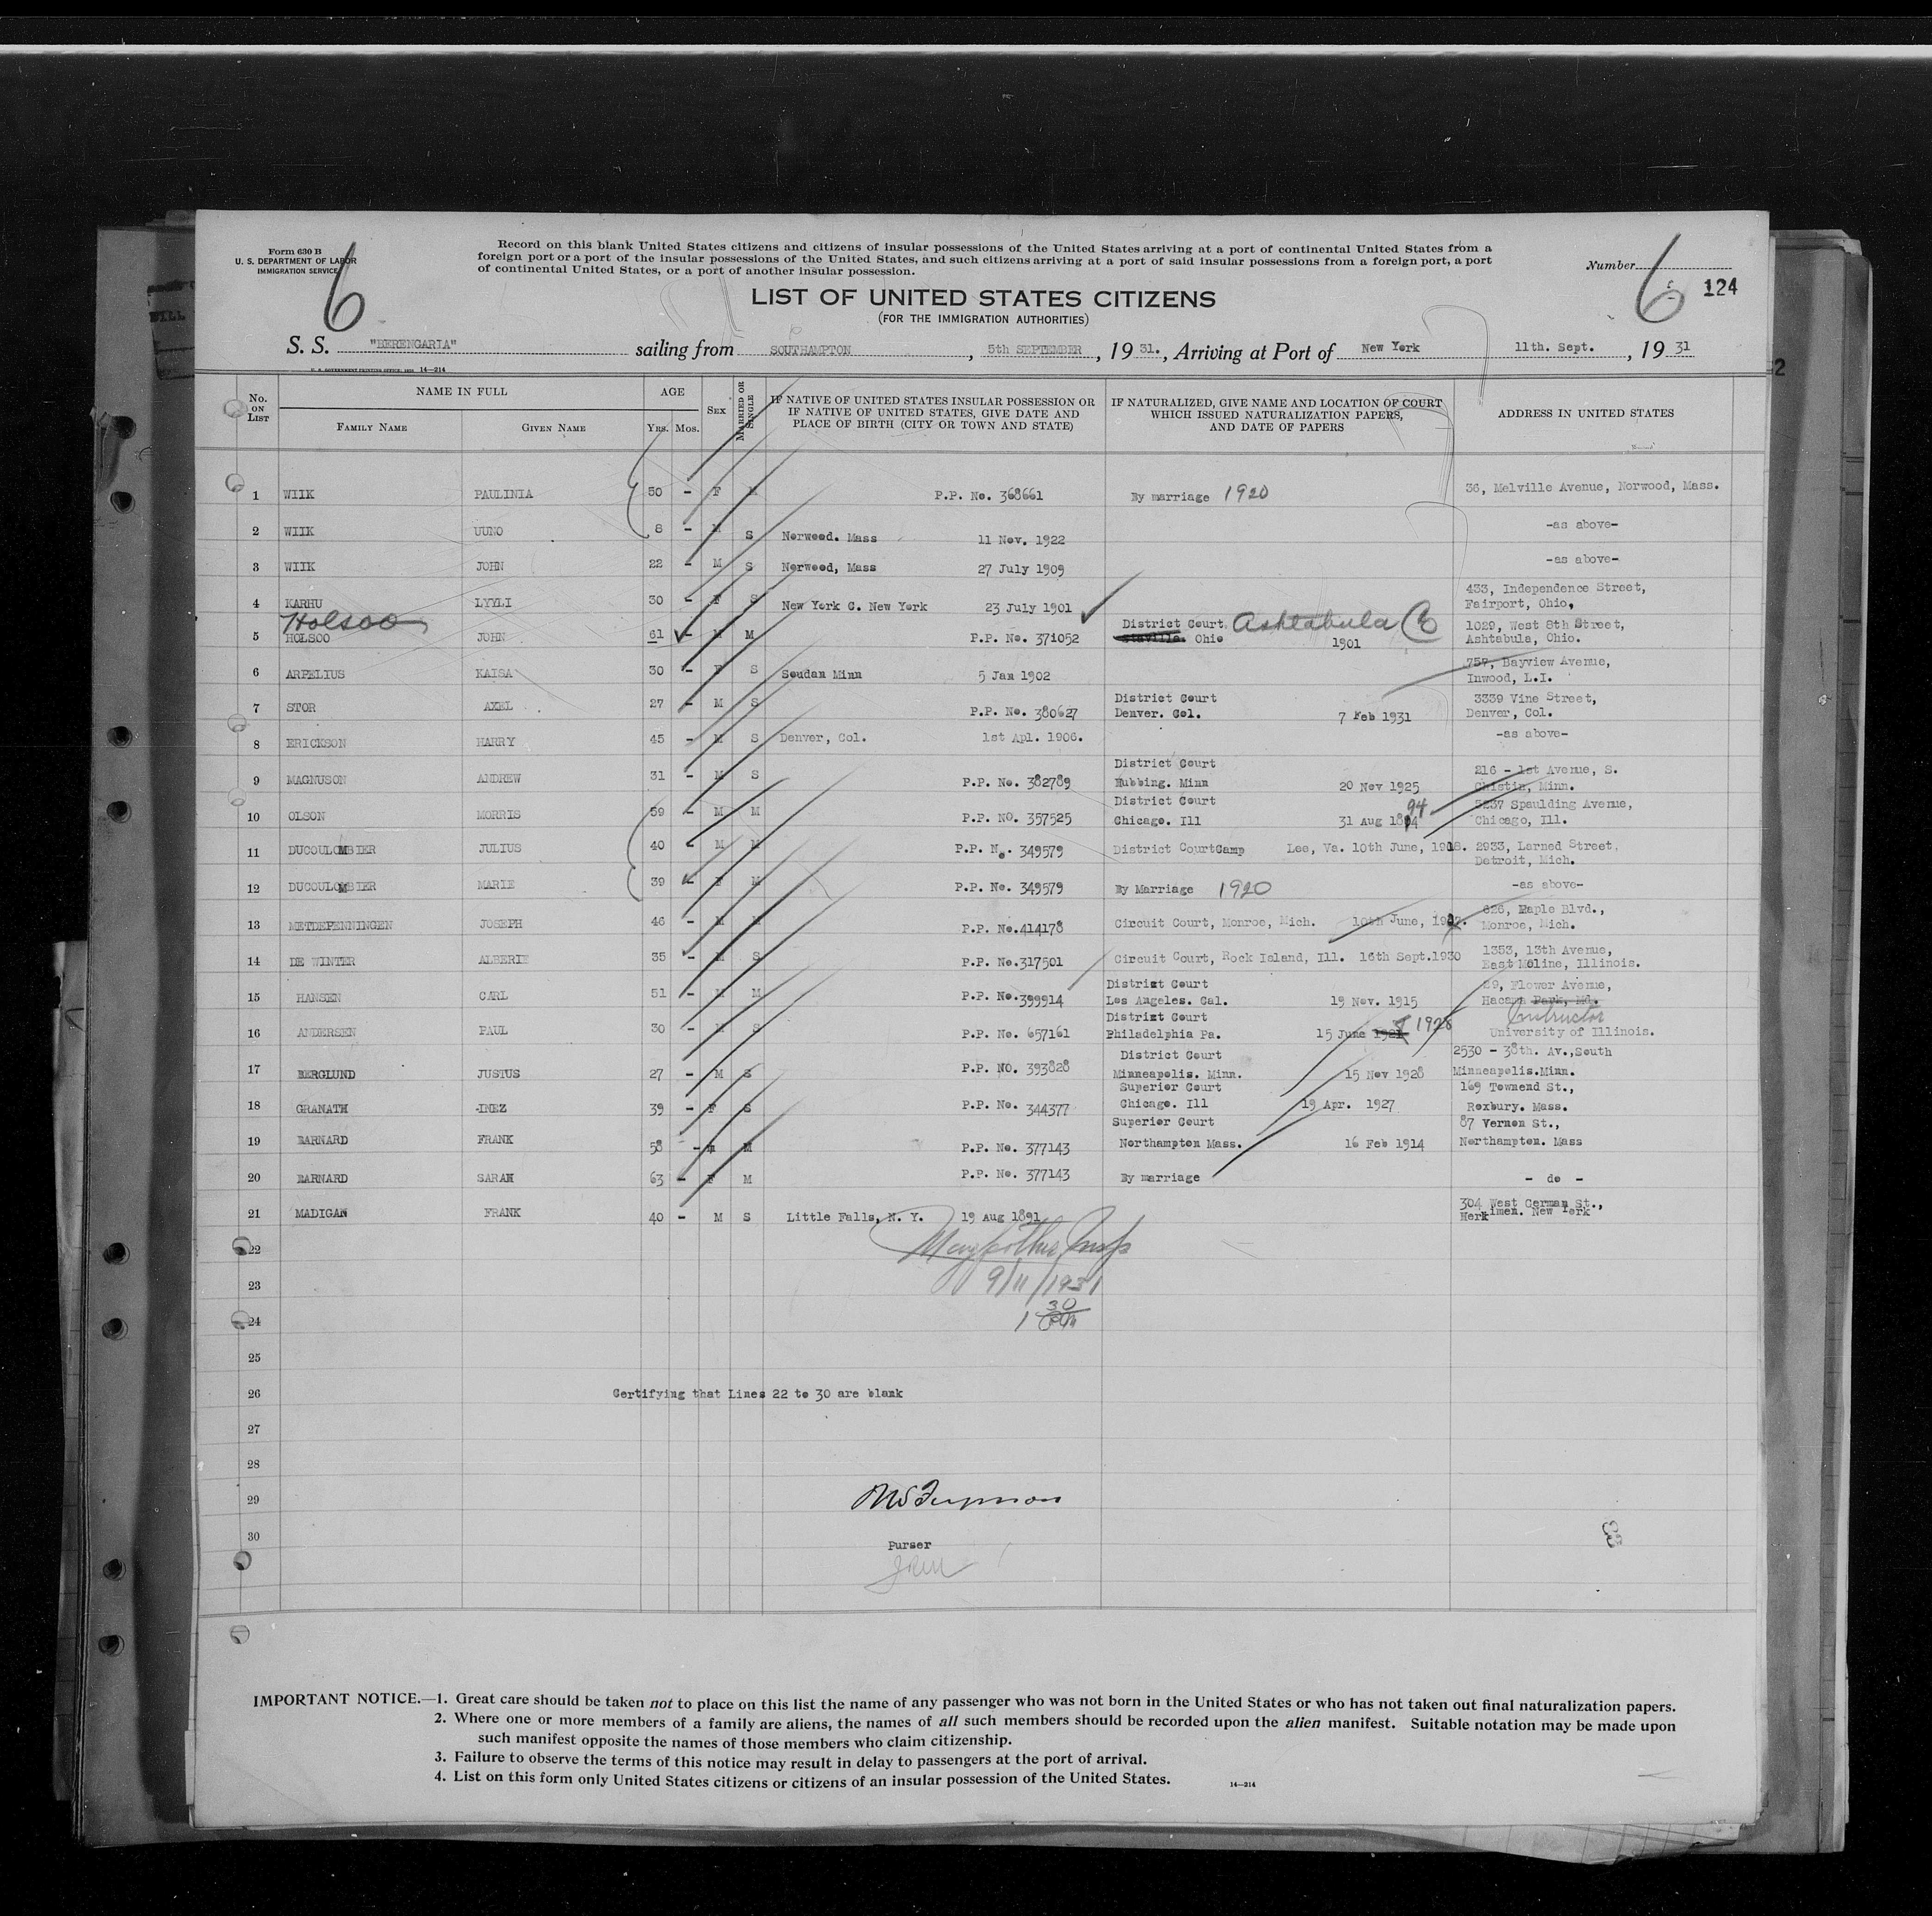 Form 630 B
U. S. DEPARTMENT OF LABOR
IMMIGRATION SERVICE
6
Record on this blank United States citizens and citizens of insular possessions of the United States arriving at a port of continental United States from a
foreign port or a port of the insular possessions of the United States, and such citizens arriving at a port of said insular possessions from a foreign port, a port
of continental United States, or a port of another insular possession.
Number 6 124
LIST OF UNITED STATES CITIZENS
(FOR THE IMMIGRATION AUTHORITIES)
S. S. "BERENGARIA" sailing from SOUTHAMPTON, 5th SEPTEMBER, 19 31., Arriving at Port of New York 11th. Sept., 19 31
U. S. GOVERNMENT PRINTING OFFICE 14—214
No. ON LIST NAME IN FULL AGE SEX MARRIED OR SINGLE IF NATIVE OF UNITED STATES INSULAR POSSESSION OR IF NATIVE OF UNITED STATES, GIVE DATE AND PLACE OF BIRTH (CITY OR TOWN AND STATE) IF NATURALIZED, GIVE NAME AND LOCATION OF COURT WHICH ISSUED NATURALIZATION PAPERS, AND DATE OF PAPERS ADDRESS IN UNITED STATES
FAMILY NAME GIVEN NAME YRS. MOS.
1 WIIK PAULINIA 50 - F M P.P. No. 368661 By marriage 1920 36, Melville Avenue, Norwood, Mass.
2 WIIK UUNO 8 - M S Norwood. Mass 11 Nov. 1922 -as above-
3 WIIK JOHN 22 - M S Norwood, Mass 27 July 1909 -as above-
4 KARHU LYYLI 30 - F S New York C. New York 23 July 1901 433, Independence Street,
Fairport, Ohio,
Holsoo
5 HOLSOO JOHN 61 - M M P.P. No. 371052 District Court, Ashtabula
Ohio 1901 1029, West 8th Street,
Ashtabula, Ohio.
6 ARPELIUS KAISA 30 - F S Soudan Minn 5 Jan 1902 757, Bayview Avenue,
Inwood, L.I.
7 STOR AXEL 27 - M S P.P. No. 380627 District Court
Denver. Col. 7 Feb 1931 3339 Vine Street,
Denver, Col.
8 ERICKSON HARRY 45 - M S Denver, Col. 1st Apl. 1906. -as above-
9 MAGNUSON ANDREW 31 - M S P.P. No. 382789 District Court
Hubbing. Minn 20 Nov 1925 216 - 1st Avenue, S.
Chistin, Minn.
10 OLSON MORRIS 59 - M M P.P. NO. 357525 District Court
Chicago. Ill 31 Aug 1894 94 5237 Spaulding Avenue,
Chicago, Ill.
11 DUCOULOMBIER JULIUS 40 - M M P.P. No. 349579 District Court Camp Lee, Va. 10th June, 1918. 2933, Larned Street,
Detroit, Mich.
12 DUCOULOMBIER MARIE 39 - F M P.P. No. 349579 By Marriage 1920 -as above-
13 METDEPENNINGEN JOSEPH 46 - M M P.P. No.414178 Circuit Court, Monroe, Mich. 10th June, 626, Maple Blvd.,
Monroe, Mich.
14 DE WINTER ALBERIE 35 - M S P.P. No.317501 Circuit Court, Rock Island, Ill. 16th Sept.1930 1353, 13th Avenue,
East Moline, Illinois.
15 HANSEN CARL 51 - M M P.P. No.399914 District Court
Los Angeles. Cal. 19 Nov. 1915 Flower Avenue,
Park, Md.
16 ANDERSEN PAUL 30 - M S P.P. No. 657161 District Court
Philadelphia Pa. 15 June 1921 1928 Instructor
University of Illinois.
17 BERGLUND JUSTUS 27 - M S P.P. NO. 393828 District Court
Minneapolis. Minn. 15 Nov 1928 2530 - 38th. Av.,South
Minneapolis.Minn.
18 GRANATH INEZ 39 - F S P.P. No. 344377 Superior Court
Chicago. Ill 19 Apr. 1927 169 Townend St.,
Roxbury. Mass.
19 BARNARD FRANK 58 - M M P.P. No. 377143 Superior Court
Northampton Mass. 16 Feb 1914 87 Vernon St.,
Northampton. Mass
20 BARNARD SARAH 63 - F M P.P. No. 377143 By marriage - do -
21 MADIGAN FRANK 40 - M S Little Falls, N. Y. 19 Aug 1891 304 West German St.,
Herkimen. New York
22
23 9/11/1931
24 1 30
25
26 Certifying that Lines 22 to 30 are blank
27
28
29
30
Purser
33
IMPORTANT NOTICE.—1. Great care should be taken not to place on this list the name of any passenger who was not born in the United States or who has not taken out final naturalization papers.
2. Where one or more members of a family are aliens, the names of all such members should be recorded upon the alien manifest. Suitable notation may be made upon
such manifest opposite the names of those members who claim citizenship.
3. Failure to observe the terms of this notice may result in delay to passengers at the port of arrival.
4. List on this form only United States citizens or citizens of an insular possession of the United States.
14—214